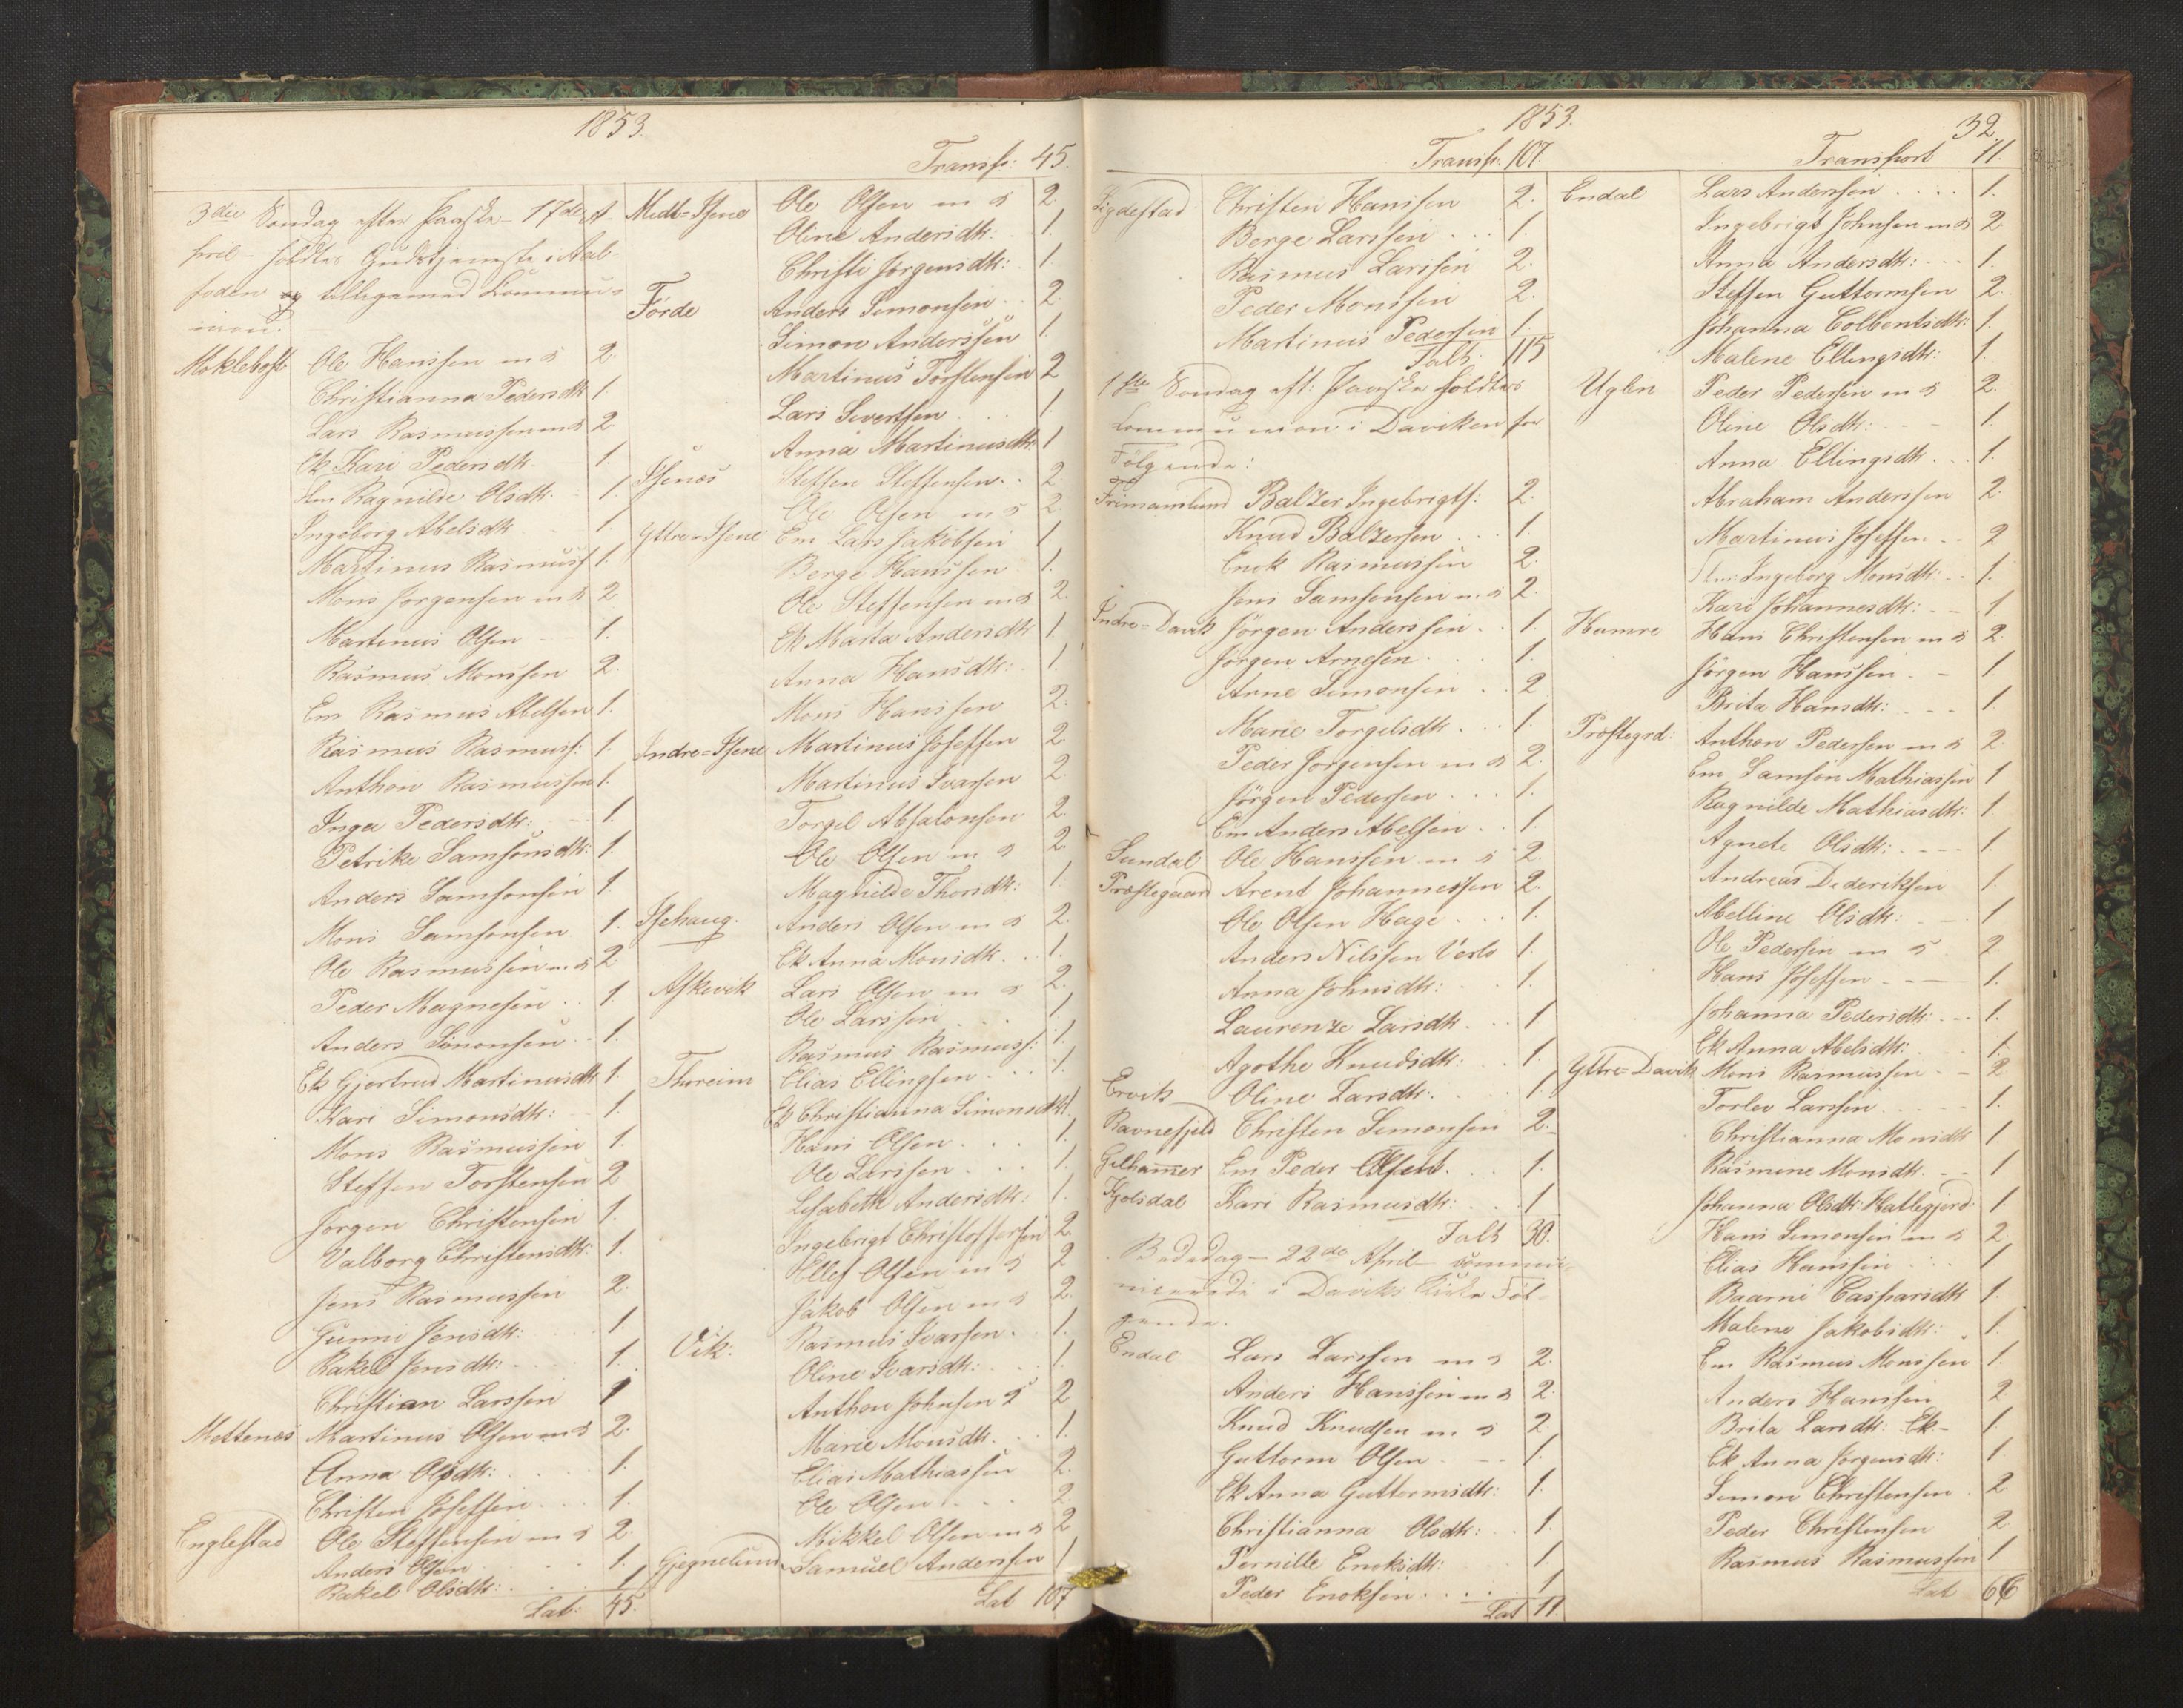 1853.
Transp: 45.
3die Søndag efter Paaske - 17de A-
pril - holdtes Gudstjeneste i Aal-
foden og tilligemed Commu-
nion.
Møklebost Ole Hanssen m s 2
Christianna Pedersdtr 1.
Lars Rasmussen m s 2
Ek Kari Pedersdtr. 1.
Ragnilde Olsdtr. 1.
Ingeborg Abelsdtr 1
Martinus Rasmuss 1.
Mons Jørgensen m s 2
Martinus Olsen 1.
Rasmus Monssen 2.
Em Rasmus Abelsen 1.
Rasmus Rasmuss: 1.
Anthon Rasmussen 1.
Inga Pedersdtr: 1.
Petrike Samsonsdtr: 1.
Anders Samsonsen 1.
Mons Samsonsen 1.
Ole Rasmussen m s 2
Peder Magnesen 1.
Anders Simonsen 1.
Ek Gjertrud Martinusdtr 1.
Kari Simonsdtr: 1.
Mons Rasmussen 1.
Steffen Torstensen 2
Jørgen Christensen 1.
Valborg Christensdtr: 1.
Jens Rasmussen 2.
Gunni Jensdtr: 1.
Rakel Jensdtr: 1.
Christian Larssen 1
Mettenes Martinus Olsen m s 2.
Anna Olsdtr: 1.
Christen Josefsen 1.
Englestad Ole Steffensen m s 2.
Anders Olsen 1.
Rakel Olsdtr: 1
Lat: 45.
Midt=Isene Ole Olsen m s 2
Oline Andersdtr: 1.
Christi Jørgensdtr: 1.
Førde Anders Simonsen 2
Simon Anderssen 1.
Martinus Torstensen 2
Lars Sivertsen 1
Anna Martinusdtr. 1
Isenes Steffen Steffensen 2
Ole Olsen m s 2
Yttre=Isene Em Lars Jakobsen 1
Berge Hanssen 1.
Ole Steffensen m s 2.
Ek Marta Andersdtr 1.
Anna Hansdtr: 1.
Mons Hanssen 2.
Indre=Isene Martinus Josefsen 2
Martinus Ivarsen 2.
Torgel Absalonsen 2.
Ole Olsen m s 2
Magnilde Thorsdtr: 1.
Isehaug. Anders Olsen m s 2.
Ek Anna Monsdtr. 1.
Askevik Lars Olsen m s 2.
Ole Larssen 1.
Rasmus Rasmuss: 1.
Thoreim Elias Ellingsen 1.
Ek Christianna Simonsdtr 1.
Hans Olsen 1.
Ole Larssen 1.
Lisabeth Andersdtr: 1.
Ingebrigt Christoffersen 2.
Ellef Olsen m s 2
Jakob Olsen m s 2.
Vik: Rasmus Ivarsen 1.
Oline Ivarsdtr: 1.
Anthon Johnsen 2
Marie Monsdtr. 1.
Elias Mathiassen 2.
Ole Olsen 2.
Mikkel Olsen m s 2
Gjegnelund Samuel Anderssen 1
Lat 107
1853.
32.
Transp: 107.
Transport 11.
Rigdestad Christen Hanssen 2.
Berge Larssen 1.
Rasmus Larssen 2.
Peder Monssen 2.
Martinus Pedersen 1.
Talt. 115
1ste Søndag eft: Paaske holdtes
Communion i Daviken for
Følgende:
Frimanslund Balzer Ingebrigts: 2.
Knud Balzersen 1.
Enok Rasmussen 2.
Jens Samsonsen m s 2.
Indre=Davik Jørgen Anderssen 1.
Jørgen Arnesen 1.
Arne Simonsen 2
Marie Torgelsdtr 1.
Peder Jørgensen m s 2.
Jørgen Pedersen 1.
Em Anders Abelsen 1.
Sundal Ole Hanssen m s 2.
Præstegaard Arent Johannessen 2.
Ole Olsen Hage 1.
Anders Nilssen 1.
Anna Johnsdtr: 1.
Laurenze Larsdtr 1
Agothe Knudsdtr: 1.
Ervik Oline Larsdtr: 1
Ravnefjeld Christen Simonsen 2.
Gilhammer Em Peder Olsen 1.
Kjolsdal Kari Rasmusdtr: 1
Talt 30.
Bededag - 22de April - commu-
nicerede i Daviks Kirke Føl-
gende.
Endal Lars Larssen m s 2.
Anders Hanssen m s 2.
Knud Knudsen m s 2
Guttorm Olsen 1.
Ek Anna Guttormsdtr: 1.
Christianna Olsdtr: 1.
Pernille Enoksdtr: 1
Peder Enoksen 1
Lat 11.
Endal Lars Anderssen 1.
Ingebrigt Johnsen m s 2
Anna Andersdtr: 1.
Steffen Guttormsen 2
Johanna Colbentsdtr: 1.
Malene Ellingsdtr: 1.
Uglen Peder Pedersen m s 2.
Oline Olsdtr: 1.
Anna Ellingsdtr 1.
Abraham Anderssen 2
Martinus Josefsen 2
Ingeborg Monsdtr: 1.
Kari Johannesdtr: 1
Humre Hans Christensen m s 2
Jørgen Hanssen 1
Brita Hansdtr: 1
Præstegrd: Anthon Pedersen m s 2
Em Samson Mathiassen 1
Ragnilde Mathiasdtr: 1
Agnete Olsdtr: 1.
Andreas Dideriksen 1
Abelline Olsdtr: 1
Ole Pedersen m s 2
Hans Josefsen 1.
Johanna Pedersdtr: 1.
Ek Anna Abelsdtr: 1.
Yttre=Davik Mons Rasmussen 2
Torlev Larssen 1.
Christianna Monsdtr 1
Rasmine Monsdtr. 1
Johanna Olsdtr: Hatlegjerd 1
Hans Simonsen m s 2
Elias Hanssen 1
Baarni Casparsdtr 1
Malene Jakobsdtr: 1.
Em Rasmus Monssen 1.
Anders Hanssen 2
Brita Larsdtr: Ek 1.
Ek Anna Jørgensdtr: 1
Simon Christensen 2
Peder Christensen 2
Rasmus Rasmussen 1
Lat 66